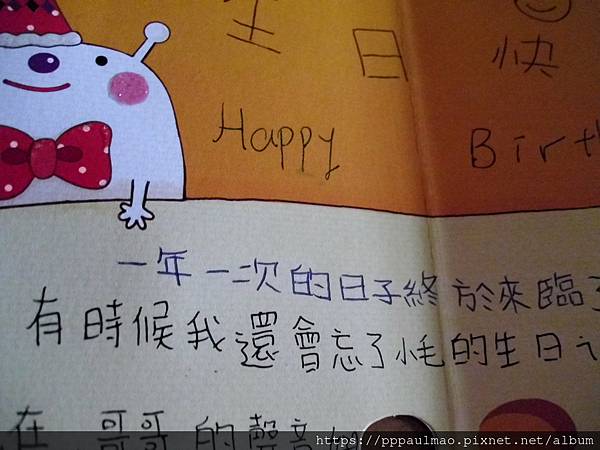 生日快
Happy Birt
一年一次的日子終於來臨了
有時候我還會忘了小毛的生日
在 哥哥的聲音
https://pppaulmao.pixnet.net/album